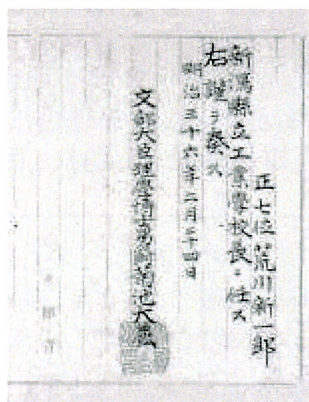 正七位荒川新一郎
新潟縣立工業學校長ニ任ス
右謹テ奏ス
明治三十六年二月二十四日
文部大臣理學博士男爵菊池大麓
文部省